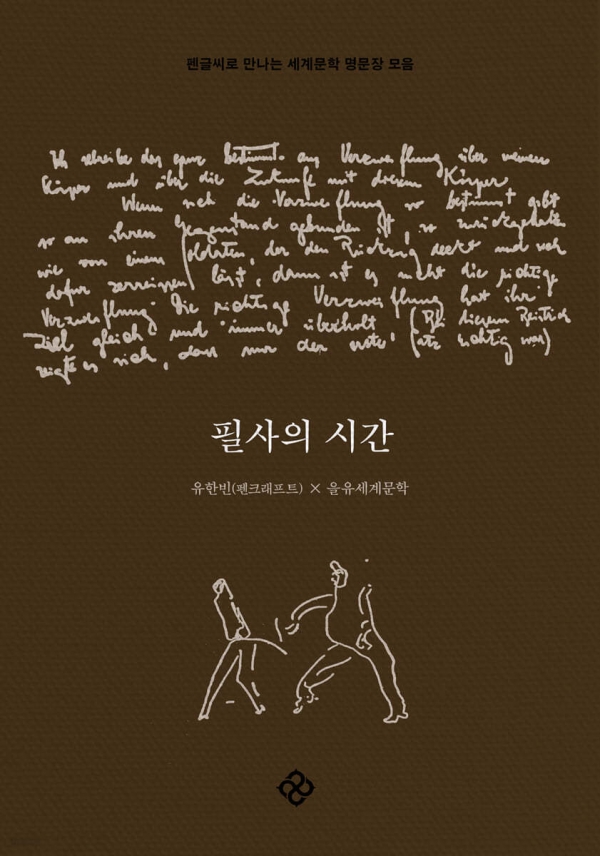 펜글씨로 만나는 세계문학 명문장 모음
Ich schreibe das ganz bestimmt aus Verzweiflung über meinen
Körper und über die Zukunft mit diesem Körper
Wenn sich die Verzweiflung so bestimmt gibt
so an ihren Gegenstand gebunden ist, so zurückgehalten
wie von einem Soldaten, der den Rückzug deckt und sich
dafür zerreissen lässt, dann ist es nicht die richtige
Verzweiflung Die richtige Verzweiflung hat ihr
Ziel gleich und immer überholt (Bei diesem Beistrich
zeigte es sich, dass nur der erste Satz richtig war)
필사의 시간
유한빈(펜크래프트) × 을유세계문학